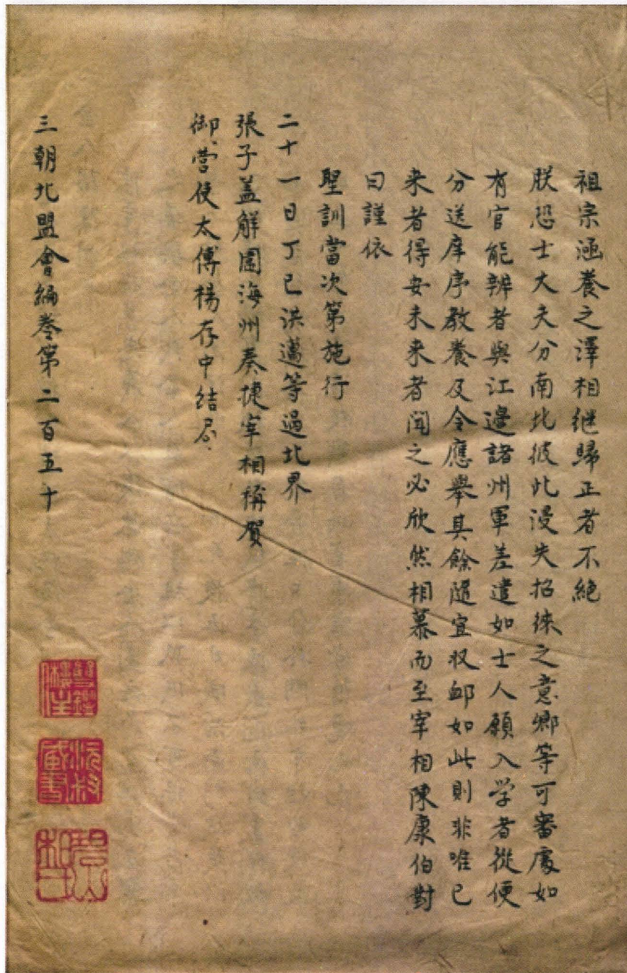 祖宗涵養之澤相継歸正者不絶
朕恐士大夫分南北彼此浸失招徠之意卿等可審處如
有官能辨者與江邉諸州軍差遣如士人願入学者從便
分送庠序教養及令應舉其餘隨宜収卹如此則非唯已
来者得安未来者闻之必欣然相慕而至宰相陳康伯對
曰謹依
聖訓當次第施行
二十一日丁巳洪邁等過北界
張子盖解圍海州奏捷宰相稱賀
御營使太傅楊存中結局
三朝北盟會編卷第二百五十